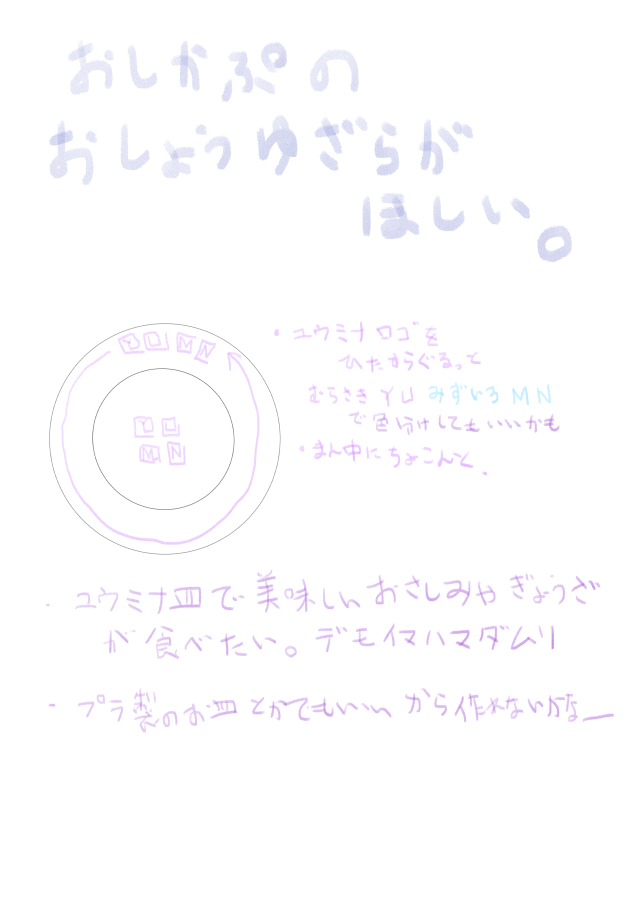 おしかぷの
おしょうゆざらが
ほしい。
YU MN
YU
MN
・ユウミナロゴを
ひたすらぐるっと
むらさきYU みずいろMN
で色分けしてもいいかも
・まん中にちょこんと.
・ユウミナ皿で美味しい おさしみや ぎょうざ
が食べたい。デモイマハマダムリ
・プラ製のお皿とかでもいい から作れないかなー